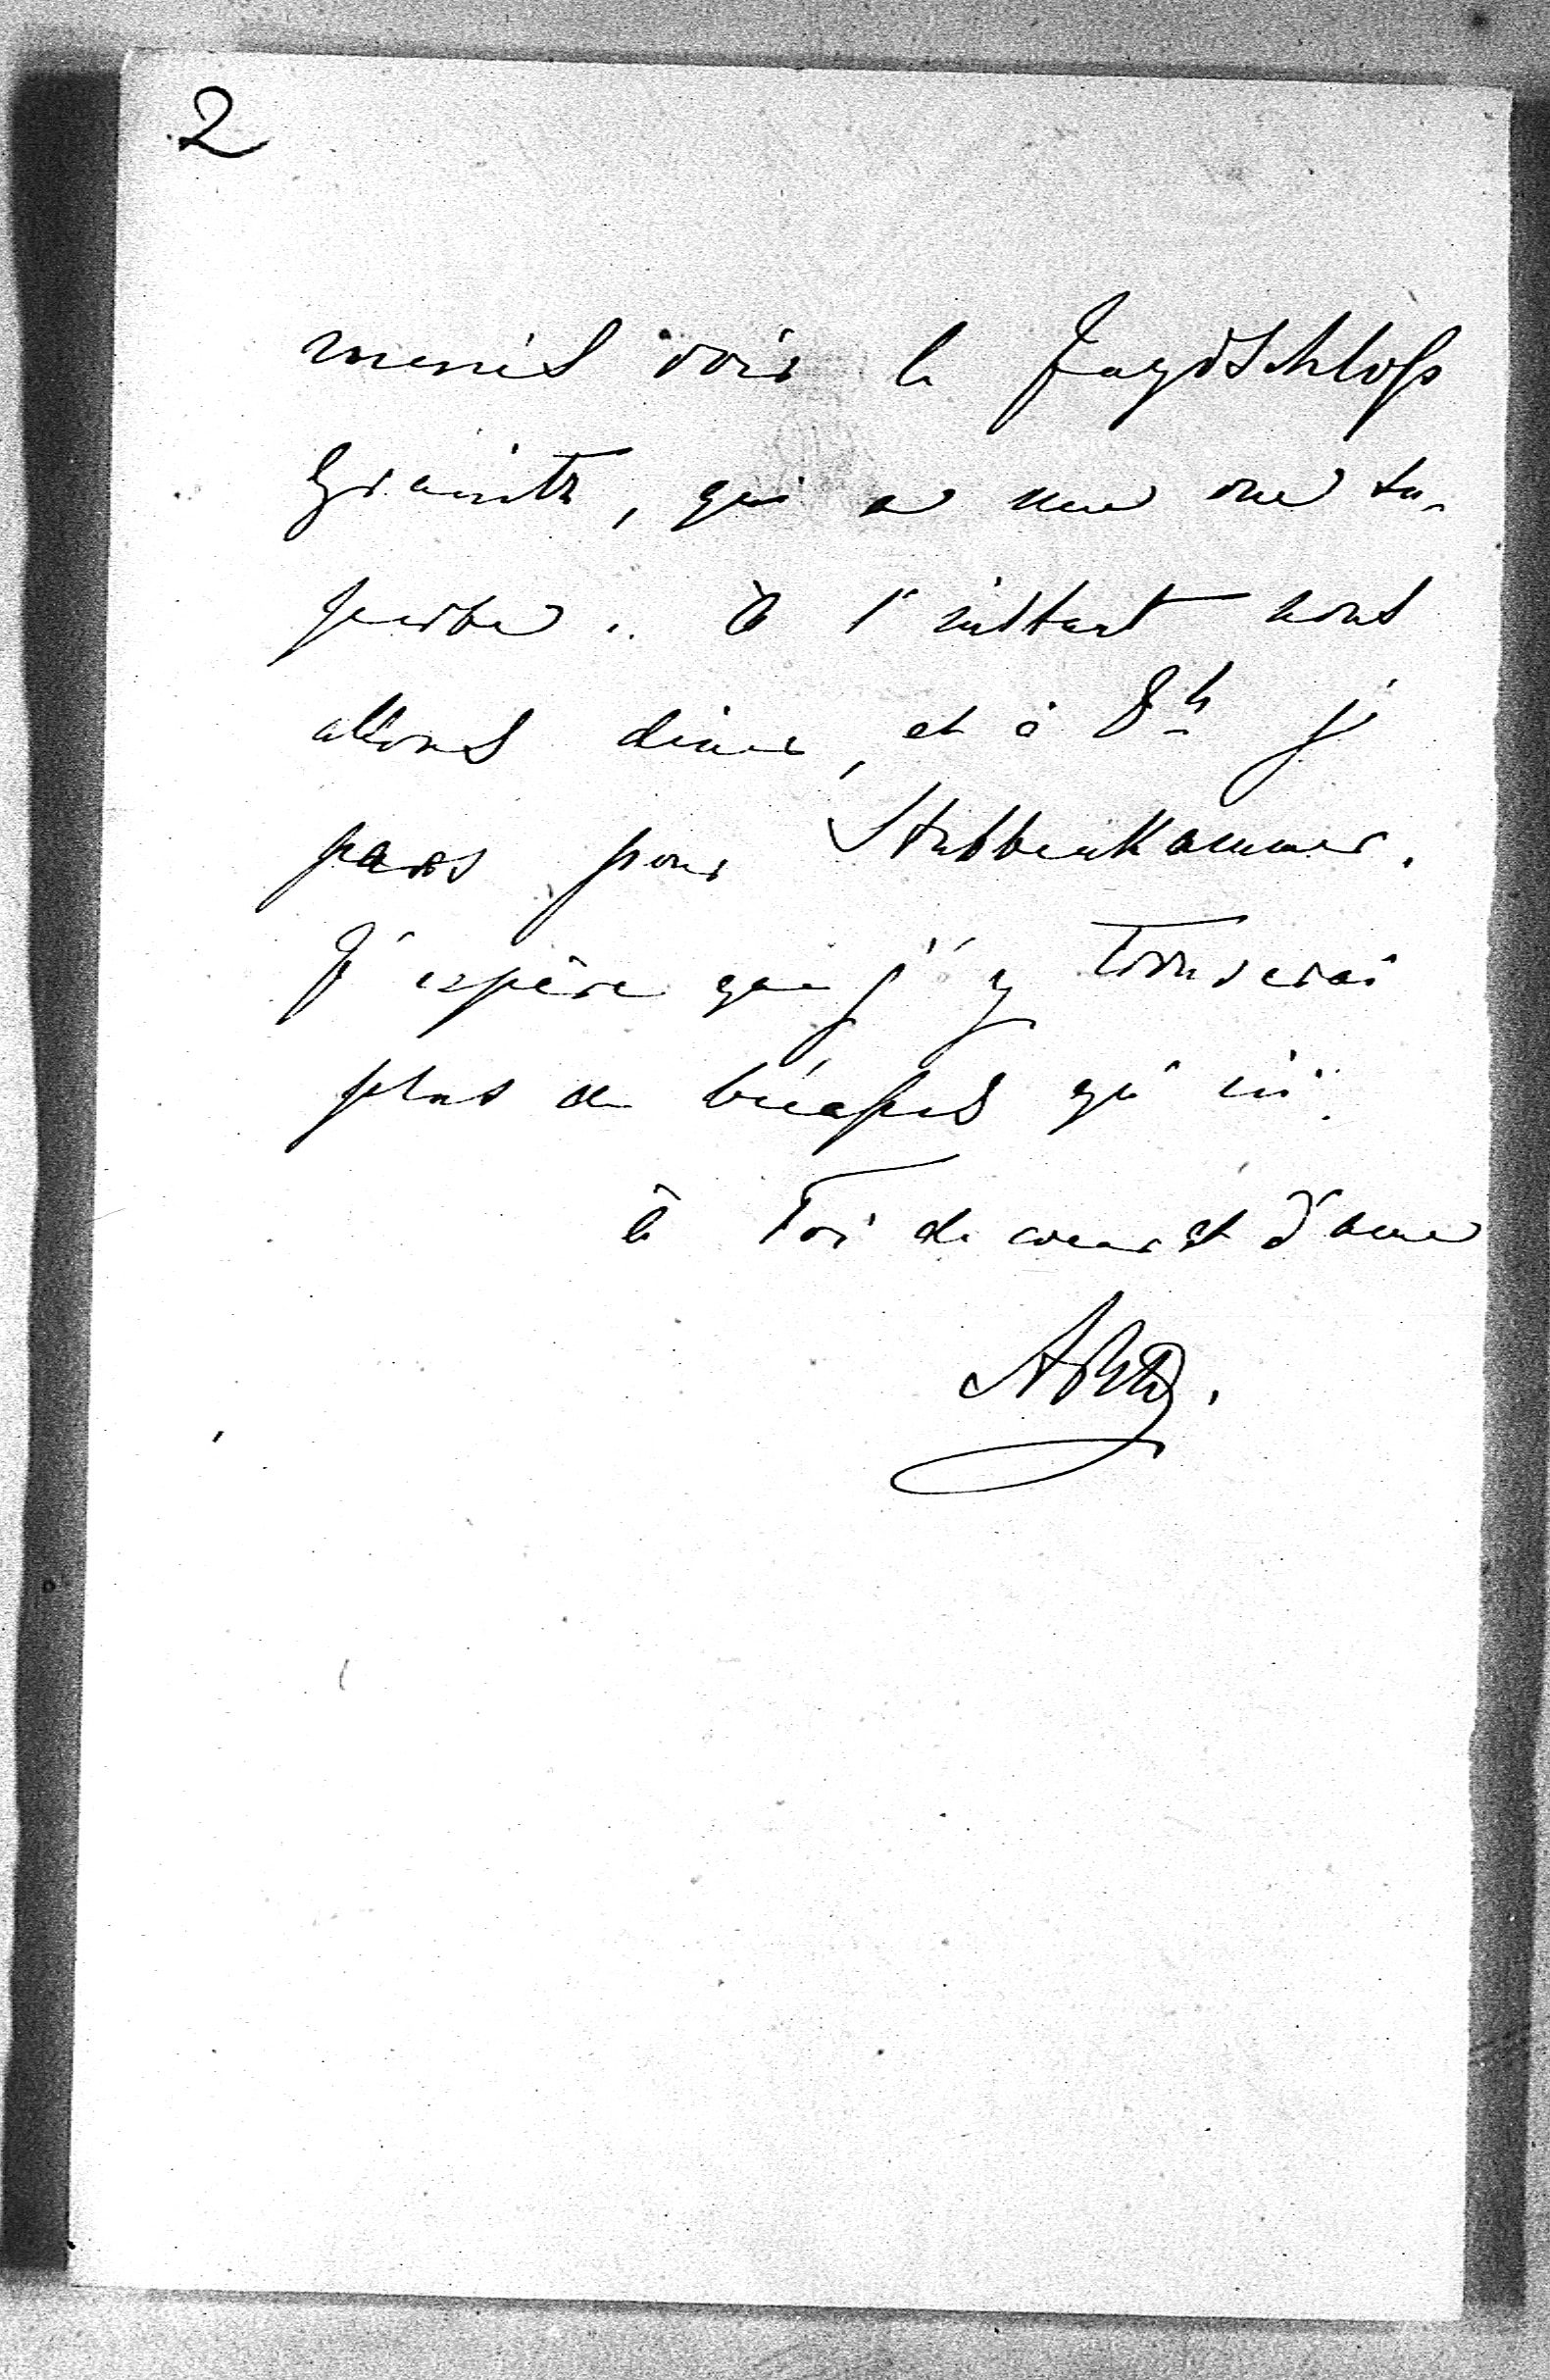 2
menés voir le Jagdschloß
Granitz, qui a une vue su-
perbe. à l'instant nous
allons diner, et à 8h je
pars pour Stubbenkammer.
J'espère que j'y trouverai
plus de bécasses qu'ici.
à Toi de coeur et d'ame